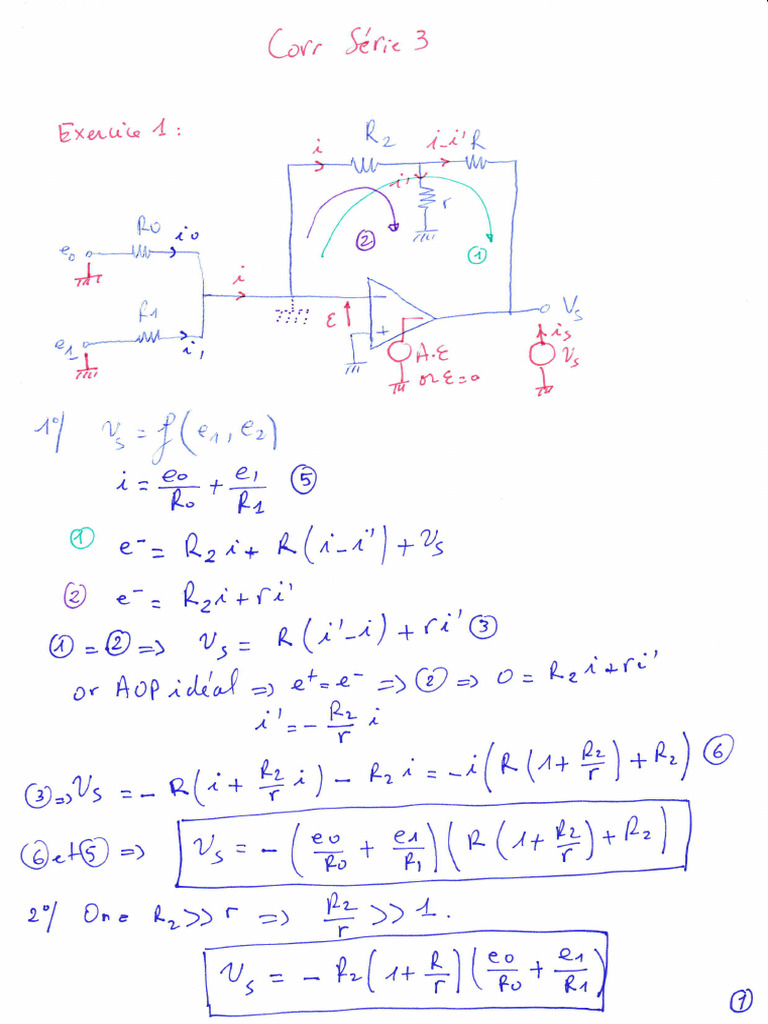 Corr Série 3
Exercice 1 :
R2 i-i' R
i
i' r
② ①
R0 i0
e0
i
R1
e1 i1
ε - + Vs
A.ε is Vs
or ε=0
1°/ vs = f(e1, e2)
i = e0/R0 + e1/R1 ⑤
① e⁻ = R2 i + R(i-i') + Vs
② e⁻ = R2 i + r i'
① = ② => Vs = R(i'-i) + r i' ③
or AOP idéal => e⁺ = e⁻ => ② => 0 = R2 i + r i'
i' = - R2/r i
③ => Vs = - R(i + R2/r i) - R2 i = -i(R(1 + R2/r) + R2) ⑥
⑥ et ⑤ => Vs = - (e0/R0 + e1/R1)(R(1 + R2/r) + R2)
2°/ On a R2 >> r => R2/r >> 1.
Vs = - R2(1 + R/r)(e0/R0 + e1/R1)
①